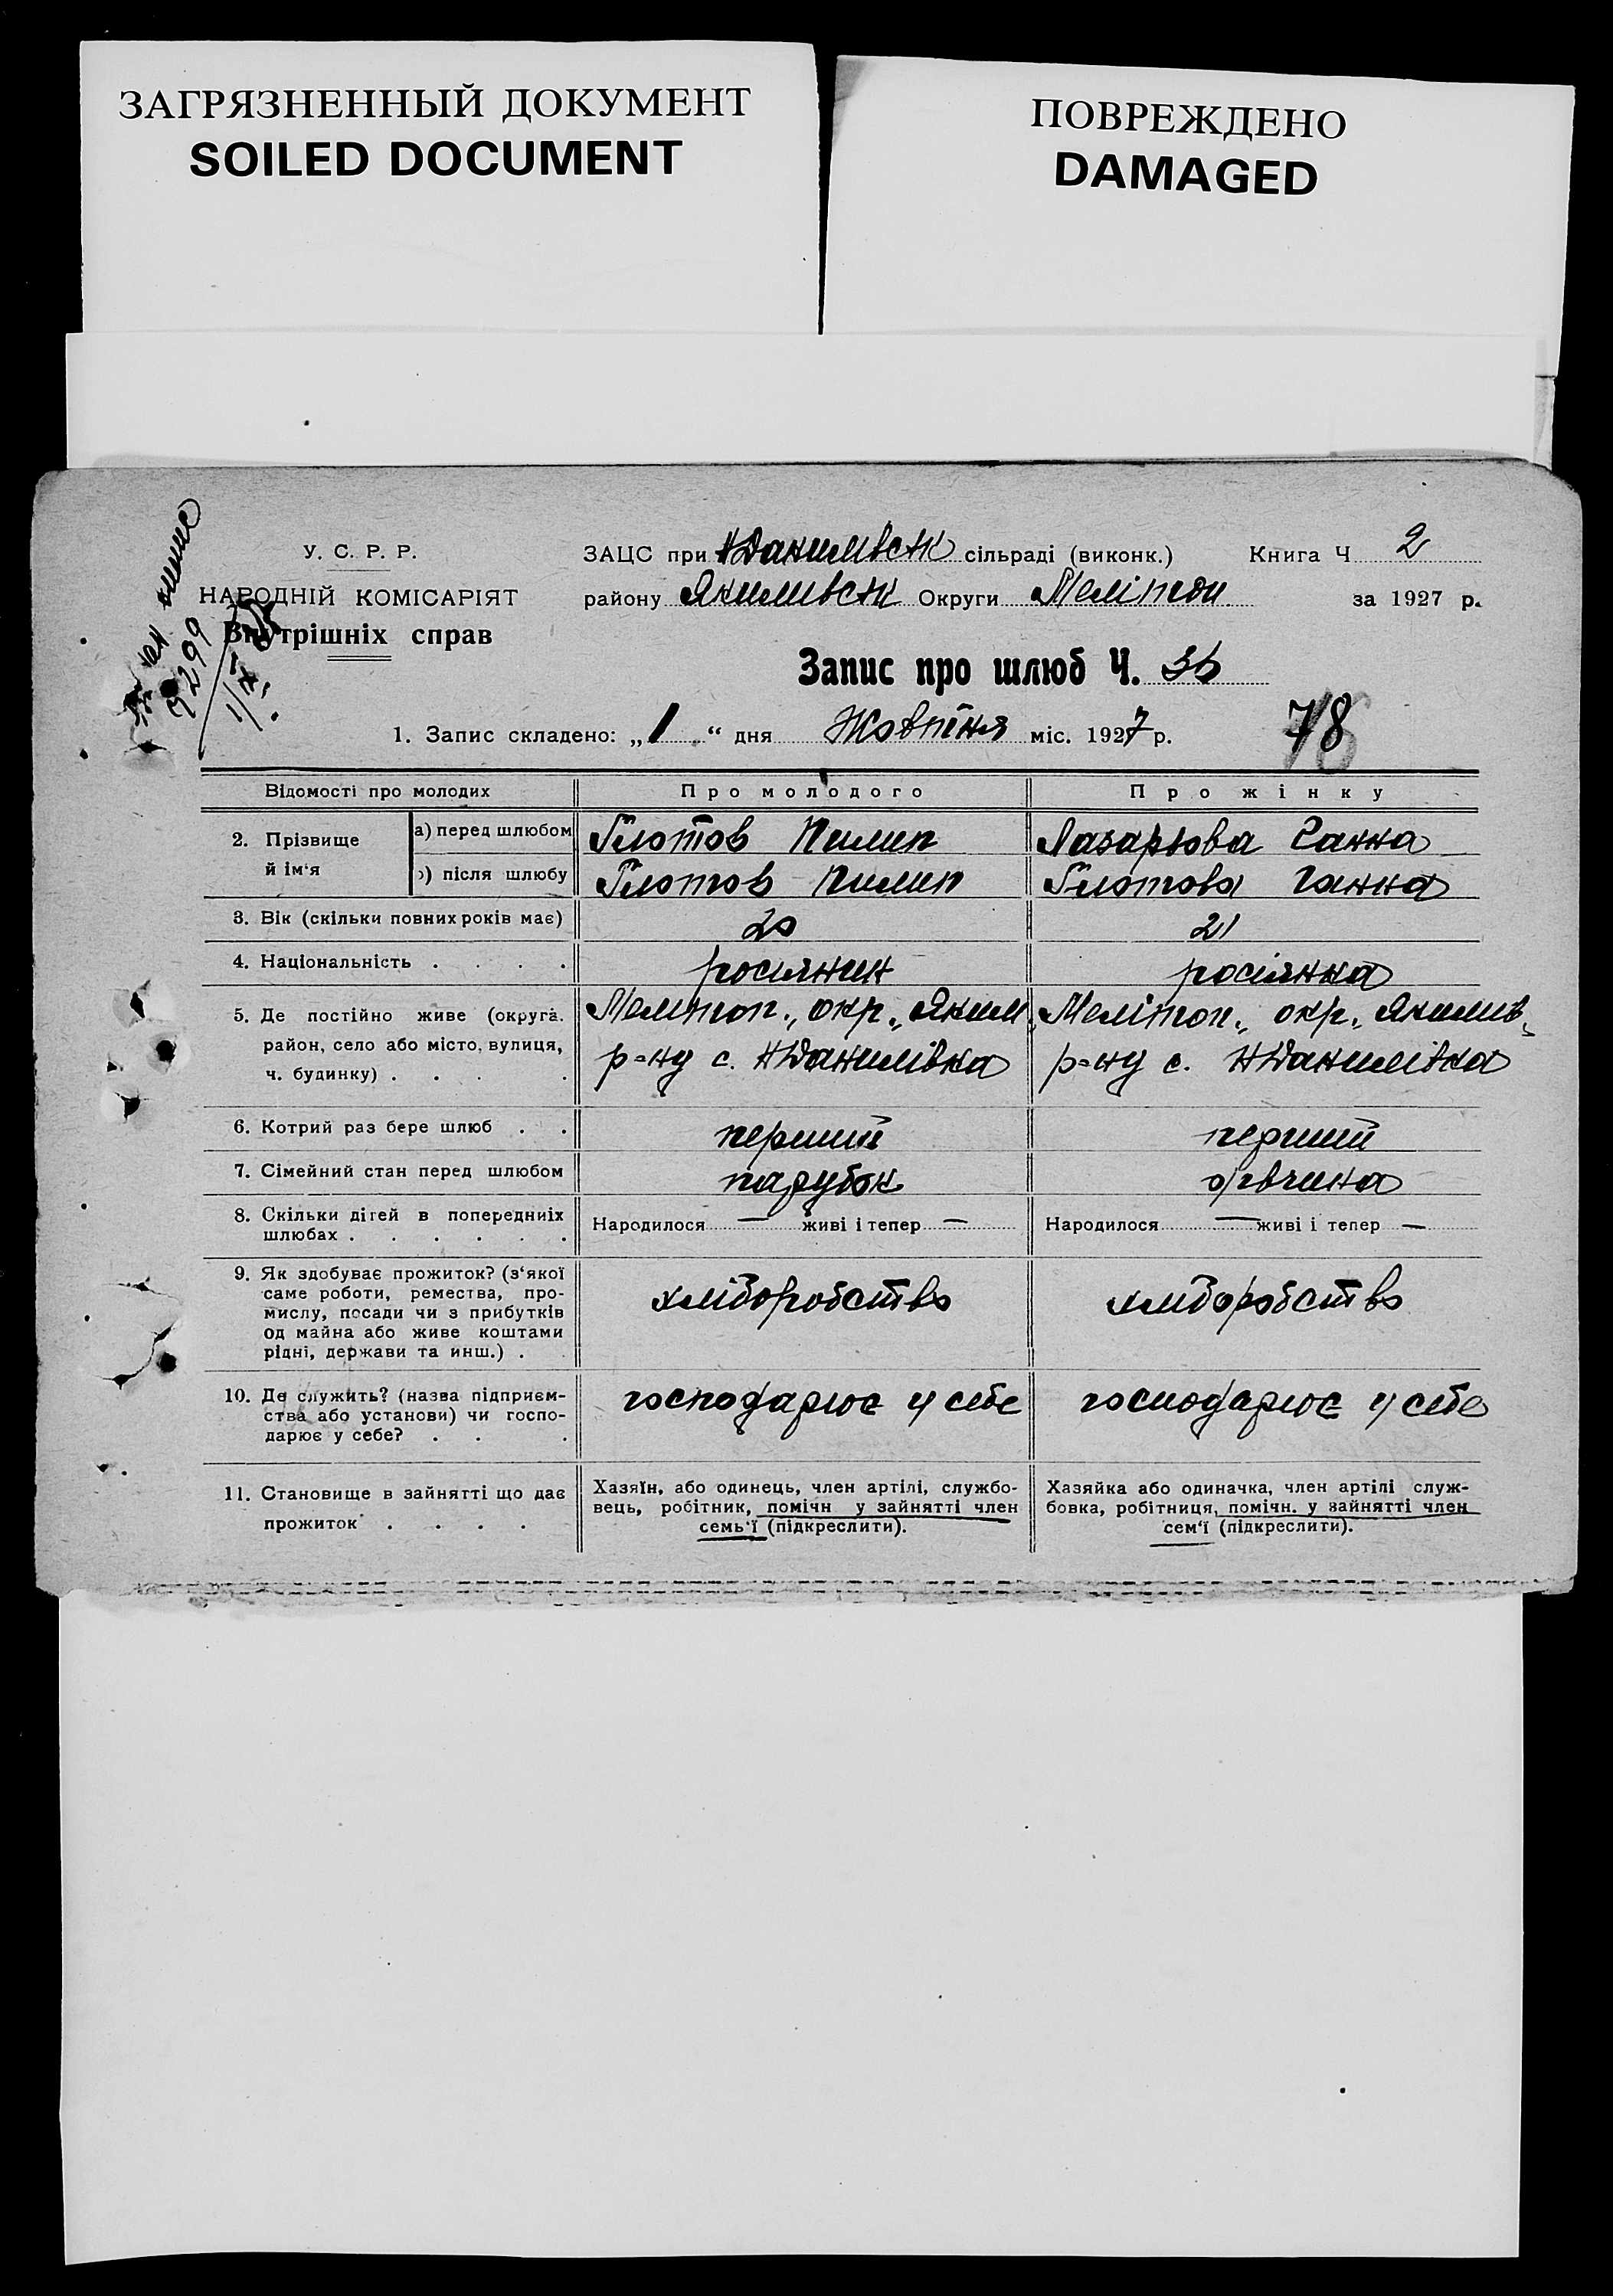 ЗАГРЯЗНЕННЫЙ ДОКУМЕНТ
SOILED DOCUMENT
ПОВРЕЖДЕНО
DAMAGED
У. С. Р. Р.
НАРОДНІЙ КОМІСАРІЯТ
Внутрішніх справ
9299
ЗАЦС при НДанилівськ сільраді (виконк.) Книга Ч 2
району Якимівськ Округи Мелітоп за 1927 р.
Запис про шлюб Ч. 36
1. Запис складено: „1“ дня Жовтня міс. 1927 р.
78
Відомості про молодих Про молодого Про жінку
2. Прізвище й ім'я
а) перед шлюбом Глотов Пилип Лазарьова Ганна
б) після шлюбу Глотов Пилип Глотова Ганна
3. Вік (скільки повних років має) 20 21
4. Національність . . . . росіянин росіянка
5. Де постійно живе (округа. Мелітоп., окр., Яким., Мелітоп., окр., Якимів.,
район, село або місто, вулиця, р=ну с. НДанилівка р=ну с. НДанилівка
ч. будинку) . . . .
6. Котрий раз бере шлюб . . перший перший
7. Сімейний стан перед шлюбом парубок дівчина
8. Скільки дітей в попередниіх Народилося — живі і тепер — Народилося — живі і тепер —
шлюбах . . . . . .
9. Як здобуває прожиток? (з'якої
саме роботи, ремества, про-
мислу, посади чи з прибутків хліборобство хліборобство
од майна або живе коштами
рідні, держави та инш.) .
10. Де служить? (назва підприєм- господарює у себе господарює у себе
ства або установи) чи госпо-
дарює у себе? . . .
11. Становище в зайнятті що дає
прожиток . . . .
Хазяїн, або одинець, член артілі, службо-
вець, робітник, помічн у зайнятті член
семь'ї (підкреслити).
Хазяйка або одиначка, член артілі служ-
бовка, робітниця, помічн. у зайнятті член
сем'ї (підкреслити).